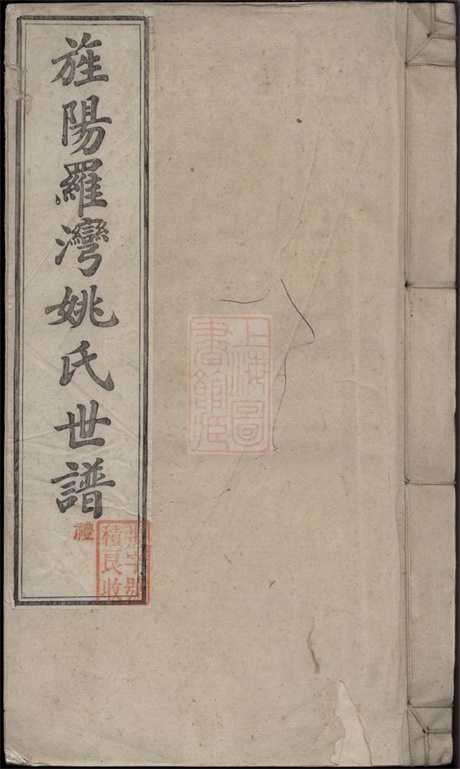 旌陽羅灣姚氏世譜
禮
張字號
積良收
上海圖
書館藏